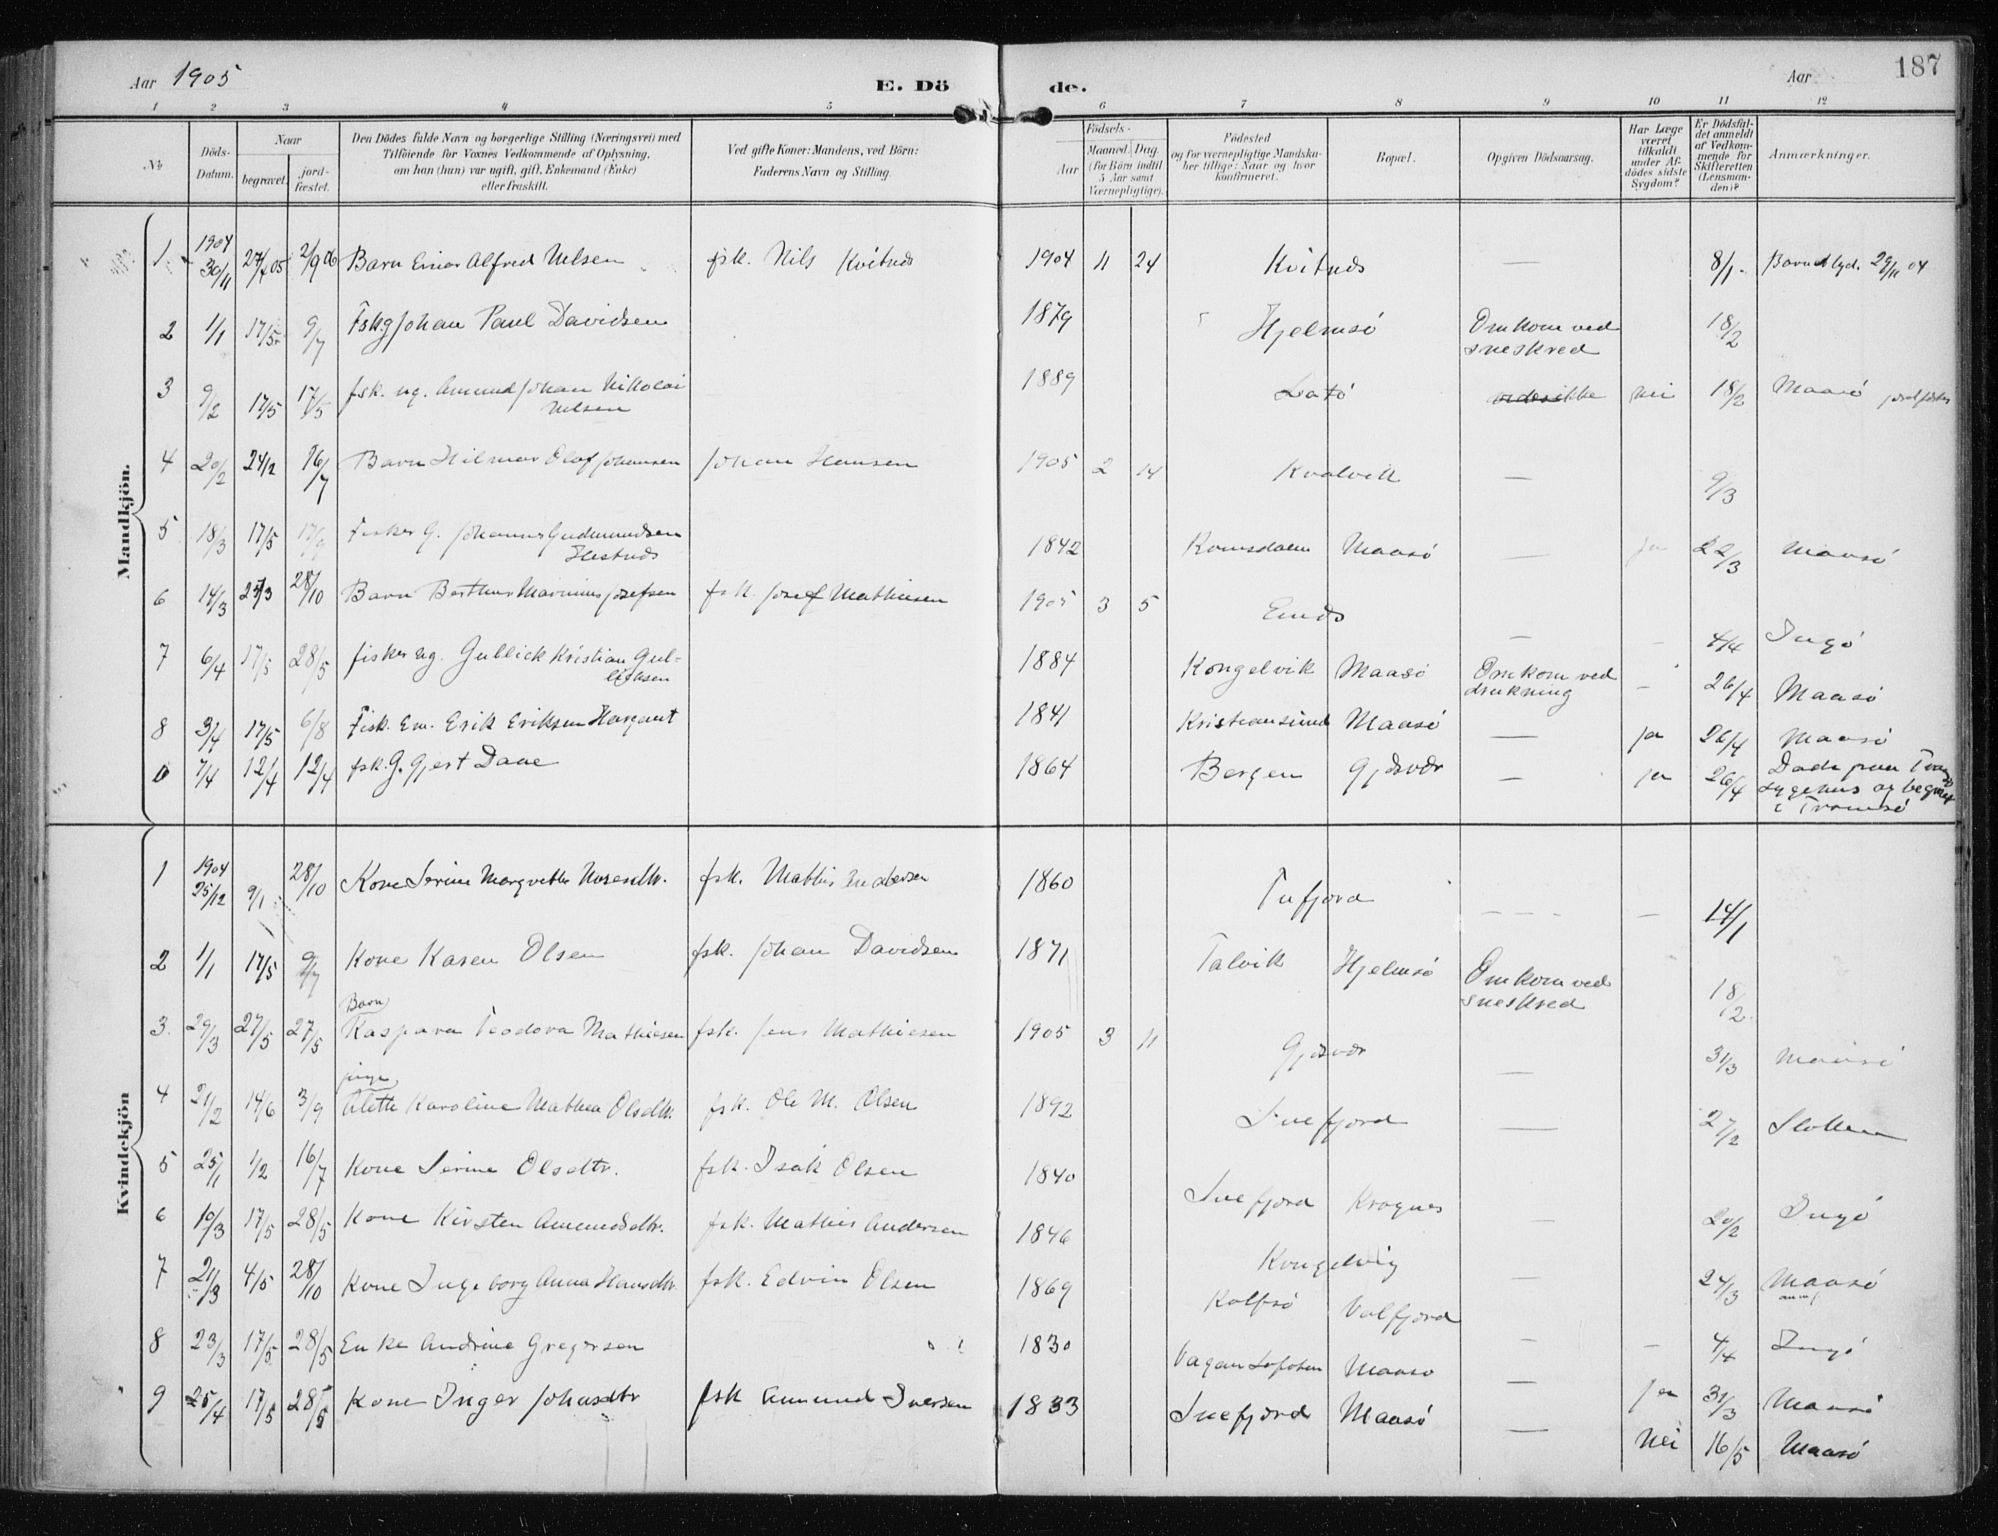 187
Aar 1905 E. Döde. Aar
1 2 3 4 5 6 7 8 9 10 11 12
No
Döds-Datum.
Naar
begravet.
jord-fæstet.
Den Dödes fulde Navn og borgerlige Stilling (Næringsvei) med
Tilföiende for Voxnes Vedkommende af Oplysning,
om han (hun) var ugift, gift, Enkemand (Enke)
eller fraskilt.
Ved gifte Koner: Mandens, ved Börn:
Faderens Navn og Stilling.
Födsels-
Aar
Maaned. Dag.
(for Börn indtil
5 Aar samt
Værnepligtige).
Födested
og for værnepligtige Mandska-
ber tillige: Naar og hvor
konfirmeret.
Bopæl.
Opgiven Dödsaarsag.
Har Læge
været
tilkaldt
under Af-
dödes sidste
Sygdom?
Er Dödsfal-
det anmeldt
af Vedkom-
mende for
Skifteretten
(Lensman-
den)?
Anmærkninger.
Mandkjön.
1 1904 30/11 2/9 06 Barn Einar Alfred Nilsen fsk. Nils Kvitnes 1904 11 24 Kvitnes 8/1 29/11 04
2 1/1 17/5 9/7 Fsk g Johan Paul Davidsen 1879 Hjelmsö Omkom ved sneskred 18/2
3 9/2 17/5 17/5 fsk. ug. Amund Johan Nikolai Nilsen 1889 Latö nei 18/2 Maasö
4 20/2 24/2 16/7 Barn Hilmar Olaf Johansen Johan Hansen 1905 2 14 Kvalvik — 9/3
5 18/3 17/5 17/9 Fisker G. Johannes Gudmundsen Hestnes 1842 Romsdalen Maasö — ja 22/3 Maasö
6 14/3 28/10 Barn Berthus Marinius Josefsen fsk. Josef Mathisen 1905 3 5 — — 4/4 Ingö
7 6/4 17/5 28/5 fisker ug. Gullick Kristian Gullicksen 1884 Kongelvik Maasö Omkom ved drukning — 26/4 Maasö
8 3/4 17/5 6/8 Fisk. Em. Erik Eriksen Hargaut 1841 Kristiansund Maasö — ja 26/4 Maasö
7/4 12/4 12/4 fsk. G. Gjert Dane 1864 Bergen Gjesvær — ja 26/4 Döde paa Tromsö sygehus og begravet i Tromsö
Kvindekjön
1 1904 25/12 9/1 28/10 Kone Serine Margrethe fsk. Mathis Andersen 1860 Tufjord — — 14/1
2 1/1 17/5 9/7 Kone Karen Olsen fsk. Johan Davidsen 1871 Talvik Hjelmsö Omkom ved sneskred 18/2
3 29/3 27/5 27/5 Barn Kaspara Teodora Mathiesen fsk. Jens Mathiesen 1905 3 11 Gjesvær — 31/3 Maasö
4 21/2 14/6 3/9 pige Alette Karoline Mathea Olsdtr. fsk. Ole M. Olsen 1892 Snefjord — 27/2 Slotten
5 25/1 1/2 16/7 Kone Serine Olsdtr. fsk. Isak Olsen 1840 Snefjord Kragnes — 20/2 Ingö
6 10/3 17/5 28/5 Kone Kirsten Amundsdtr. fsk. Mathis Andersen 1846 Kongelvig — 24/3 Maasö
7 21/3 4/5 28/10 Kone Ingeborg Anna Hansdtr. fsk. Edvin Olsen 1869 Rolfsö Valfjord — — 4/4 Ingö
8 23/3 17/5 28/5 Enke Andrine Gregersen 1830 Vagan Lofoten Maasö — ja 31/3 Maasö
9 25/4 17/5 28/5 Kone Inger Johansdtr fsk Amund Iversen 1833 Snefjord Maasö — Nei 16/5 Maasö